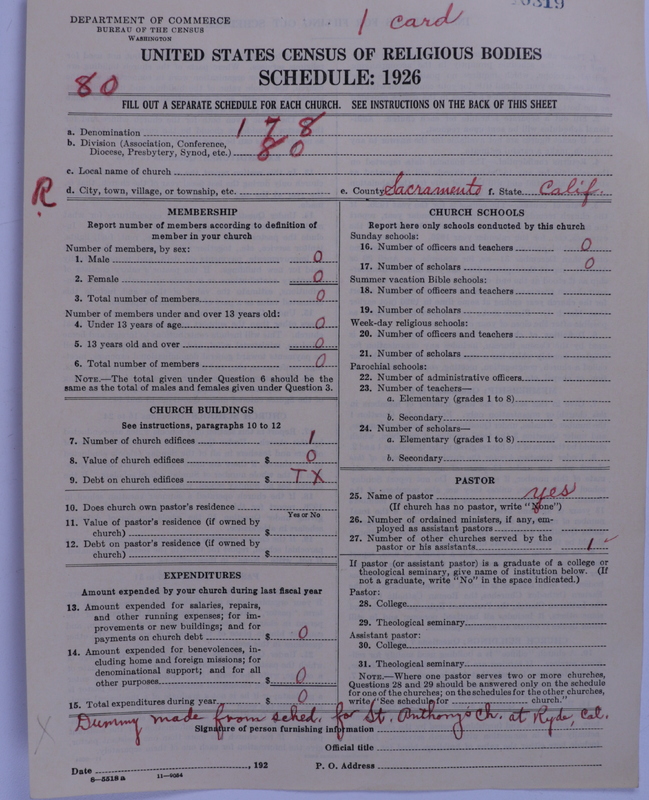 DEPARTMENT OF COMMERCE
BUREAU OF THE CENSUS
WASHINGTON
1 card
UNITED STATES CENSUS OF RELIGIOUS BODIES
SCHEDULE: 1926
80
FILL OUT A SEPARATE SCHEDULE FOR EACH CHURCH. SEE INSTRUCTIONS ON THE BACK OF THIS SHEET
a. Denomination 178
b. Division (Association, Conference,
Diocese, Presbytery, Synod, etc.) 80
c. Local name of church
R
d. City, town, village, or township, etc. e. County Sacramento f. State Calif.
MEMBERSHIP
Report number of members according to definition of
member in your church
Number of members, by sex:
1. Male 0
2. Female 0
3. Total number of members 0
Number of members under and over 13 years old:
4. Under 13 years of age 0
5. 13 years old and over 0
6. Total number of members 0
NOTE.—The total given under Question 6 should be the
same as the total of males and females given under Question 3.
CHURCH BUILDINGS
See instructions, paragraphs 10 to 12
7. Number of church edifices 1
8. Value of church edifices $ 0
9. Debt on church edifices $ TX
10. Does church own pastor's residence
Yes or No
11. Value of pastor's residence (if owned by
church) $
12. Debt on pastor's residence (if owned by
church) $
EXPENDITURES
Amount expended by your church during last fiscal year
13. Amount expended for salaries, repairs,
and other running expenses; for im-
provements or new buildings; and for
payments on church debt $ 0
14. Amount expended for benevolences, in-
cluding home and foreign missions; for
denominational support; and for all
other purposes $ 0
15. Total expenditures during year $ 0
CHURCH SCHOOLS
Report here only schools conducted by this church
Sunday schools:
16. Number of officers and teachers 0
17. Number of scholars 0
Summer vacation Bible schools:
18. Number of officers and teachers
19. Number of scholars
Week-day religious schools:
20. Number of officers and teachers
21. Number of scholars
Parochial schools:
22. Number of administrative officers
23. Number of teachers—
a. Elementary (grades 1 to 8)
b. Secondary
24. Number of scholars—
a. Elementary (grades 1 to 8)
b. Secondary
PASTOR
25. Name of pastor yes
(If church has no pastor, write "None")
26. Number of ordained ministers, if any, em-
ployed as assistant pastors
27. Number of other churches served by the
pastor or his assistants 1
If pastor (or assistant pastor) is a graduate of a college or
theological seminary, give name of institution below. (If
not a graduate, write "No" in the space indicated.)
Pastor:
28. College
29. Theological seminary
Assistant pastor:
30. College
31. Theological seminary
NOTE.—Where one pastor serves two or more churches,
Questions 28 and 29 should be answered only on the schedule
for one of the churches; on the schedules for the other churches,
write "See schedule for church."
Dummy made from sched. for St. Anthony's Ch. at Ryde, Cal.
Signature of person furnishing information
Official title
Date , 192 P. O. Address
8—5518 a 11—9054